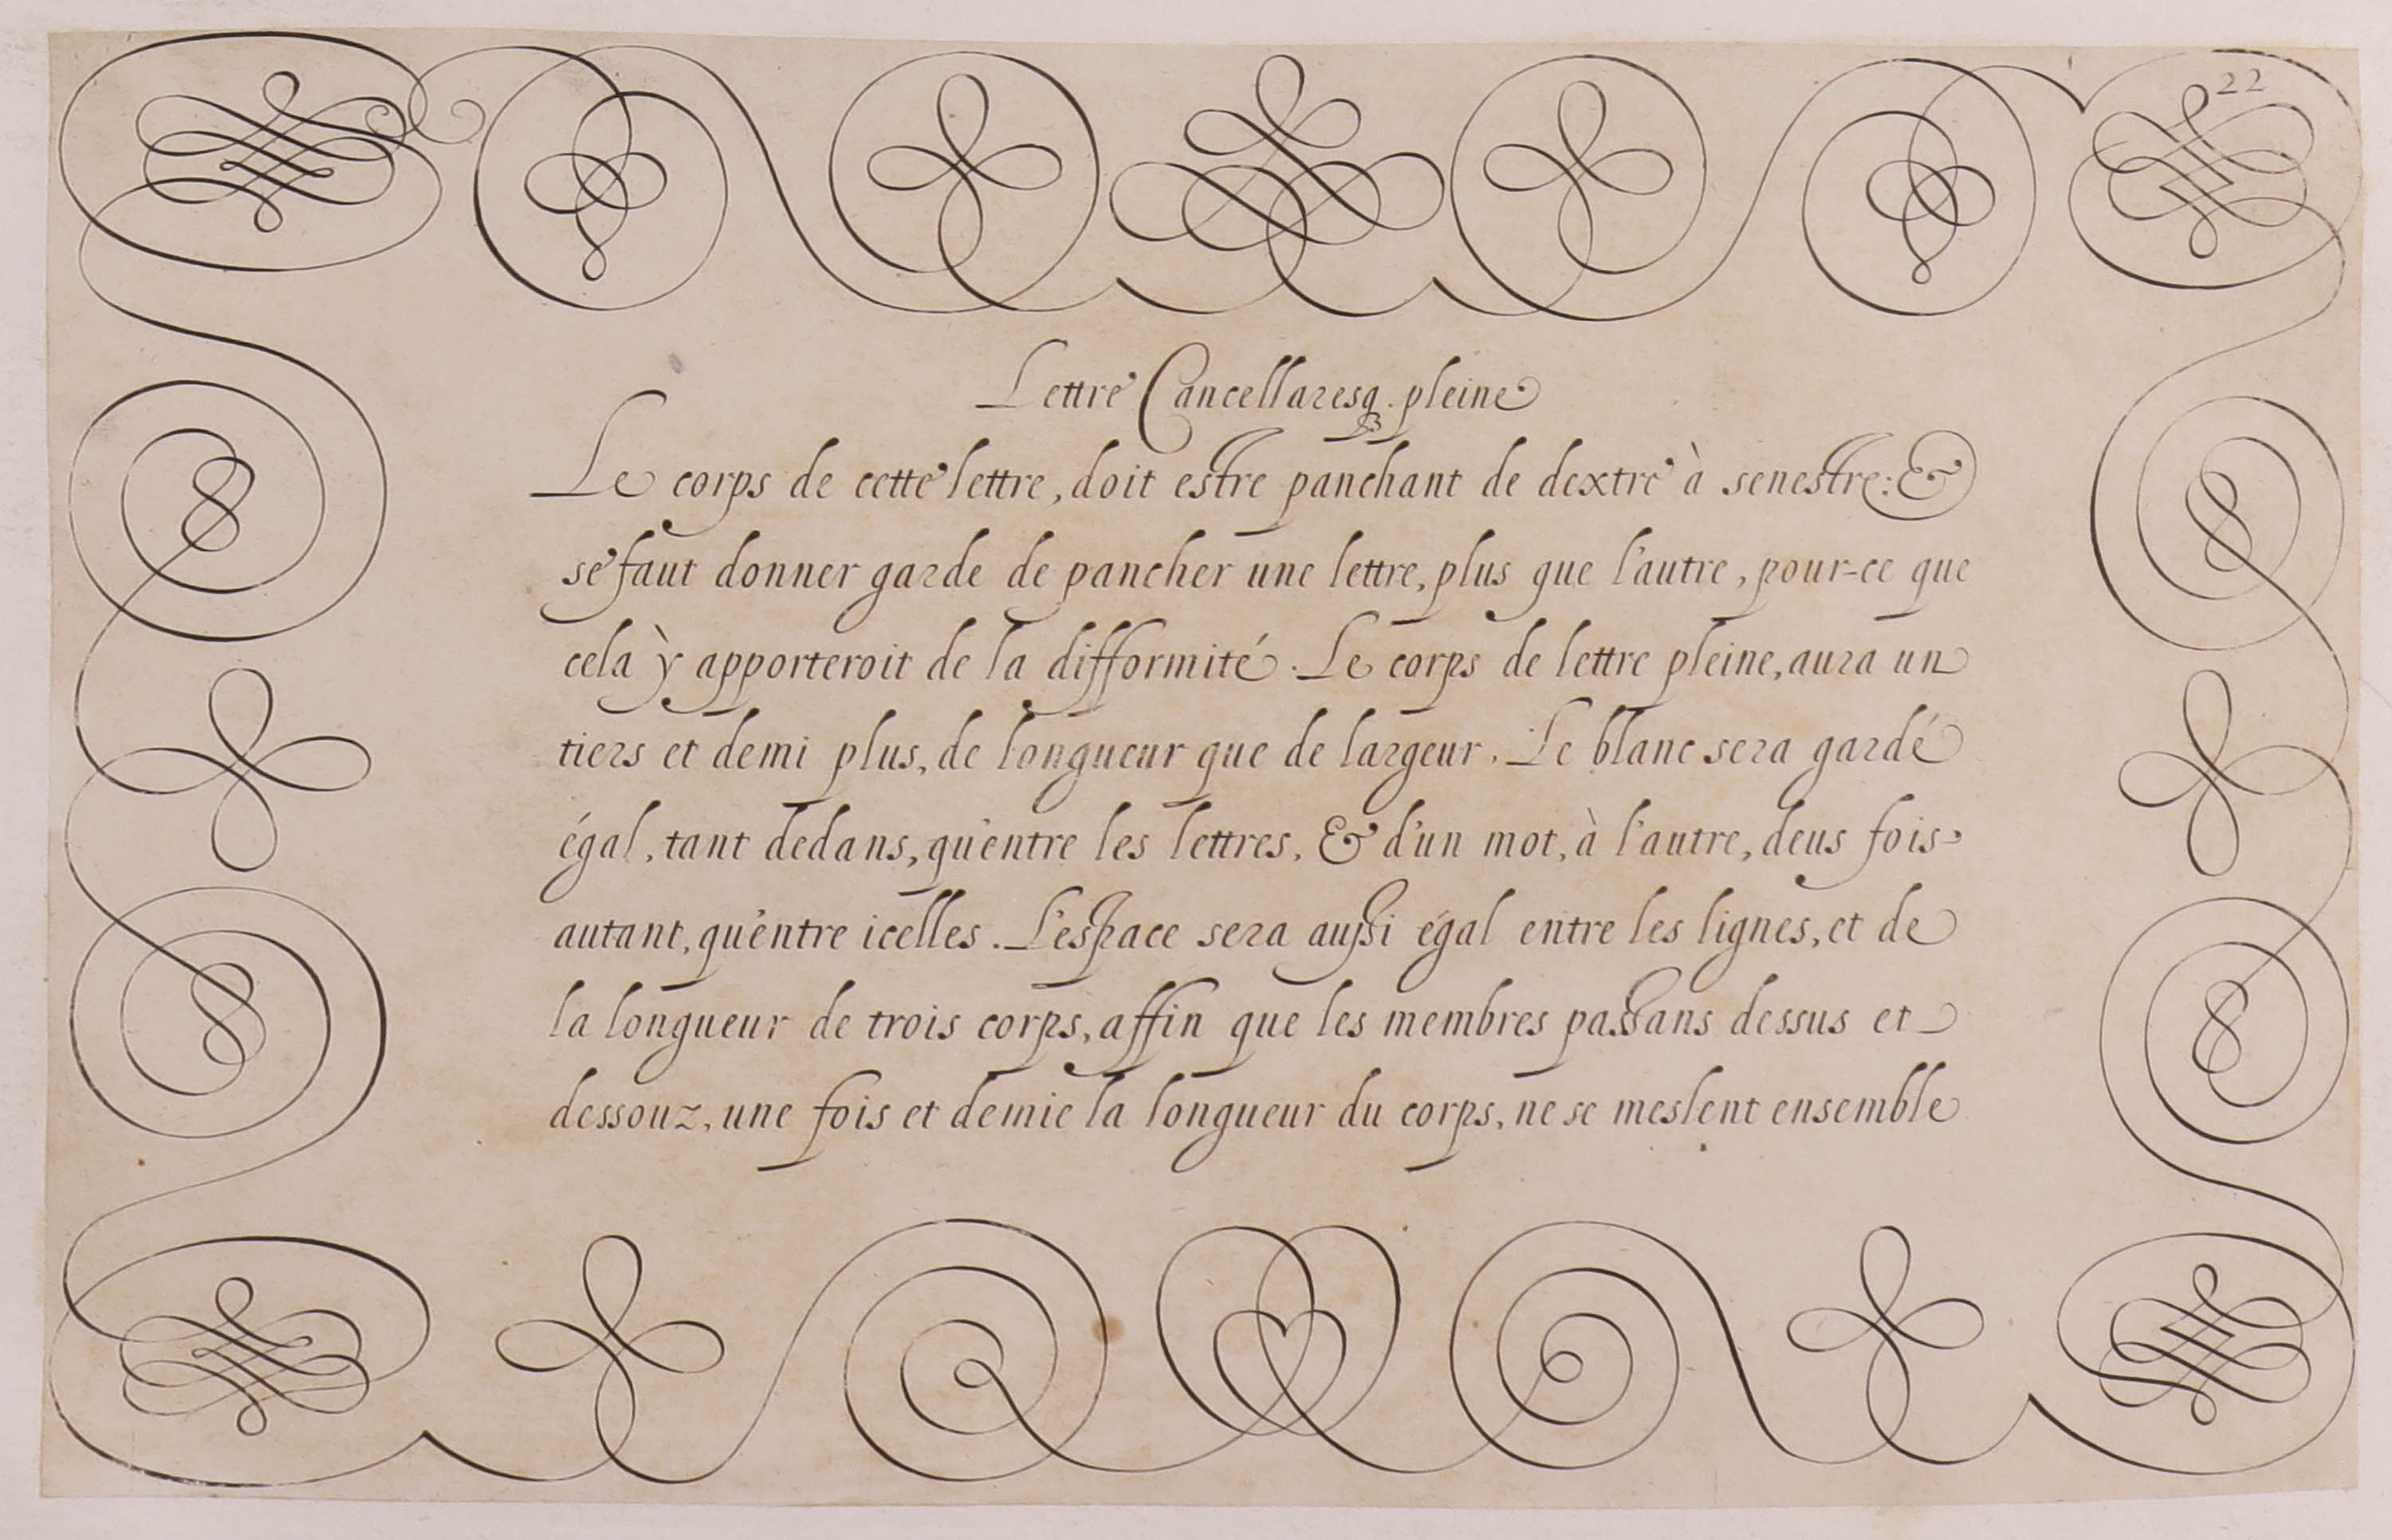 22
Lettre Cancellaresq. pleine
Le corps de cette lettre, doit estre panchant de dextre à senestre: &
se faut donner garde de pancher une lettre, plus que l'autre, pour-ce que
celà y apporteroit de la difformité. Le corps de lettre pleine, aura un
tiers et demi plus, de longueur que de largeur. Le blanc sera gardé
égal, tant dedans, qu'entre les lettres, & d'un mot, à l'autre, deus fois
autant, qu'entre icelles. L'espace sera aussi égal entre les lignes, et de
la longueur de trois corps, affin que les membres passans dessus et
dessouz, une fois et demie la longueur du corps, ne se meslent ensemble